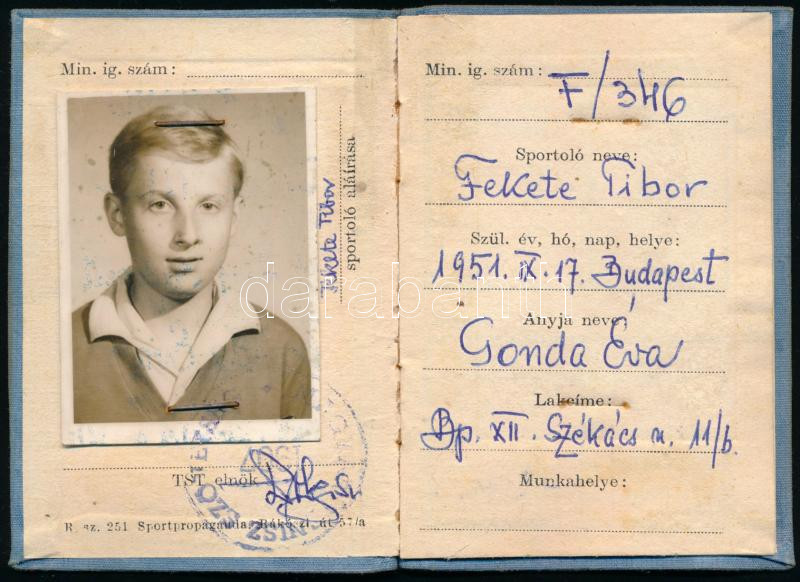 Min. ig. szám:
Fekete Tibor
sportoló aláírása
TST elnök
R. sz. 251 Sportpropaganda, Rákóczi út 57/a
Min. ig. szám:
F/346
Sportoló neve:
Fekete Tibor
Szül. év, hó, nap, helye:
1951. IX. 17. Budapest
darabanth
Anyja neve:
Gonda Éva
Lakcíme:
Bp. XII. Székács u. 11/b.
Munkahelye: